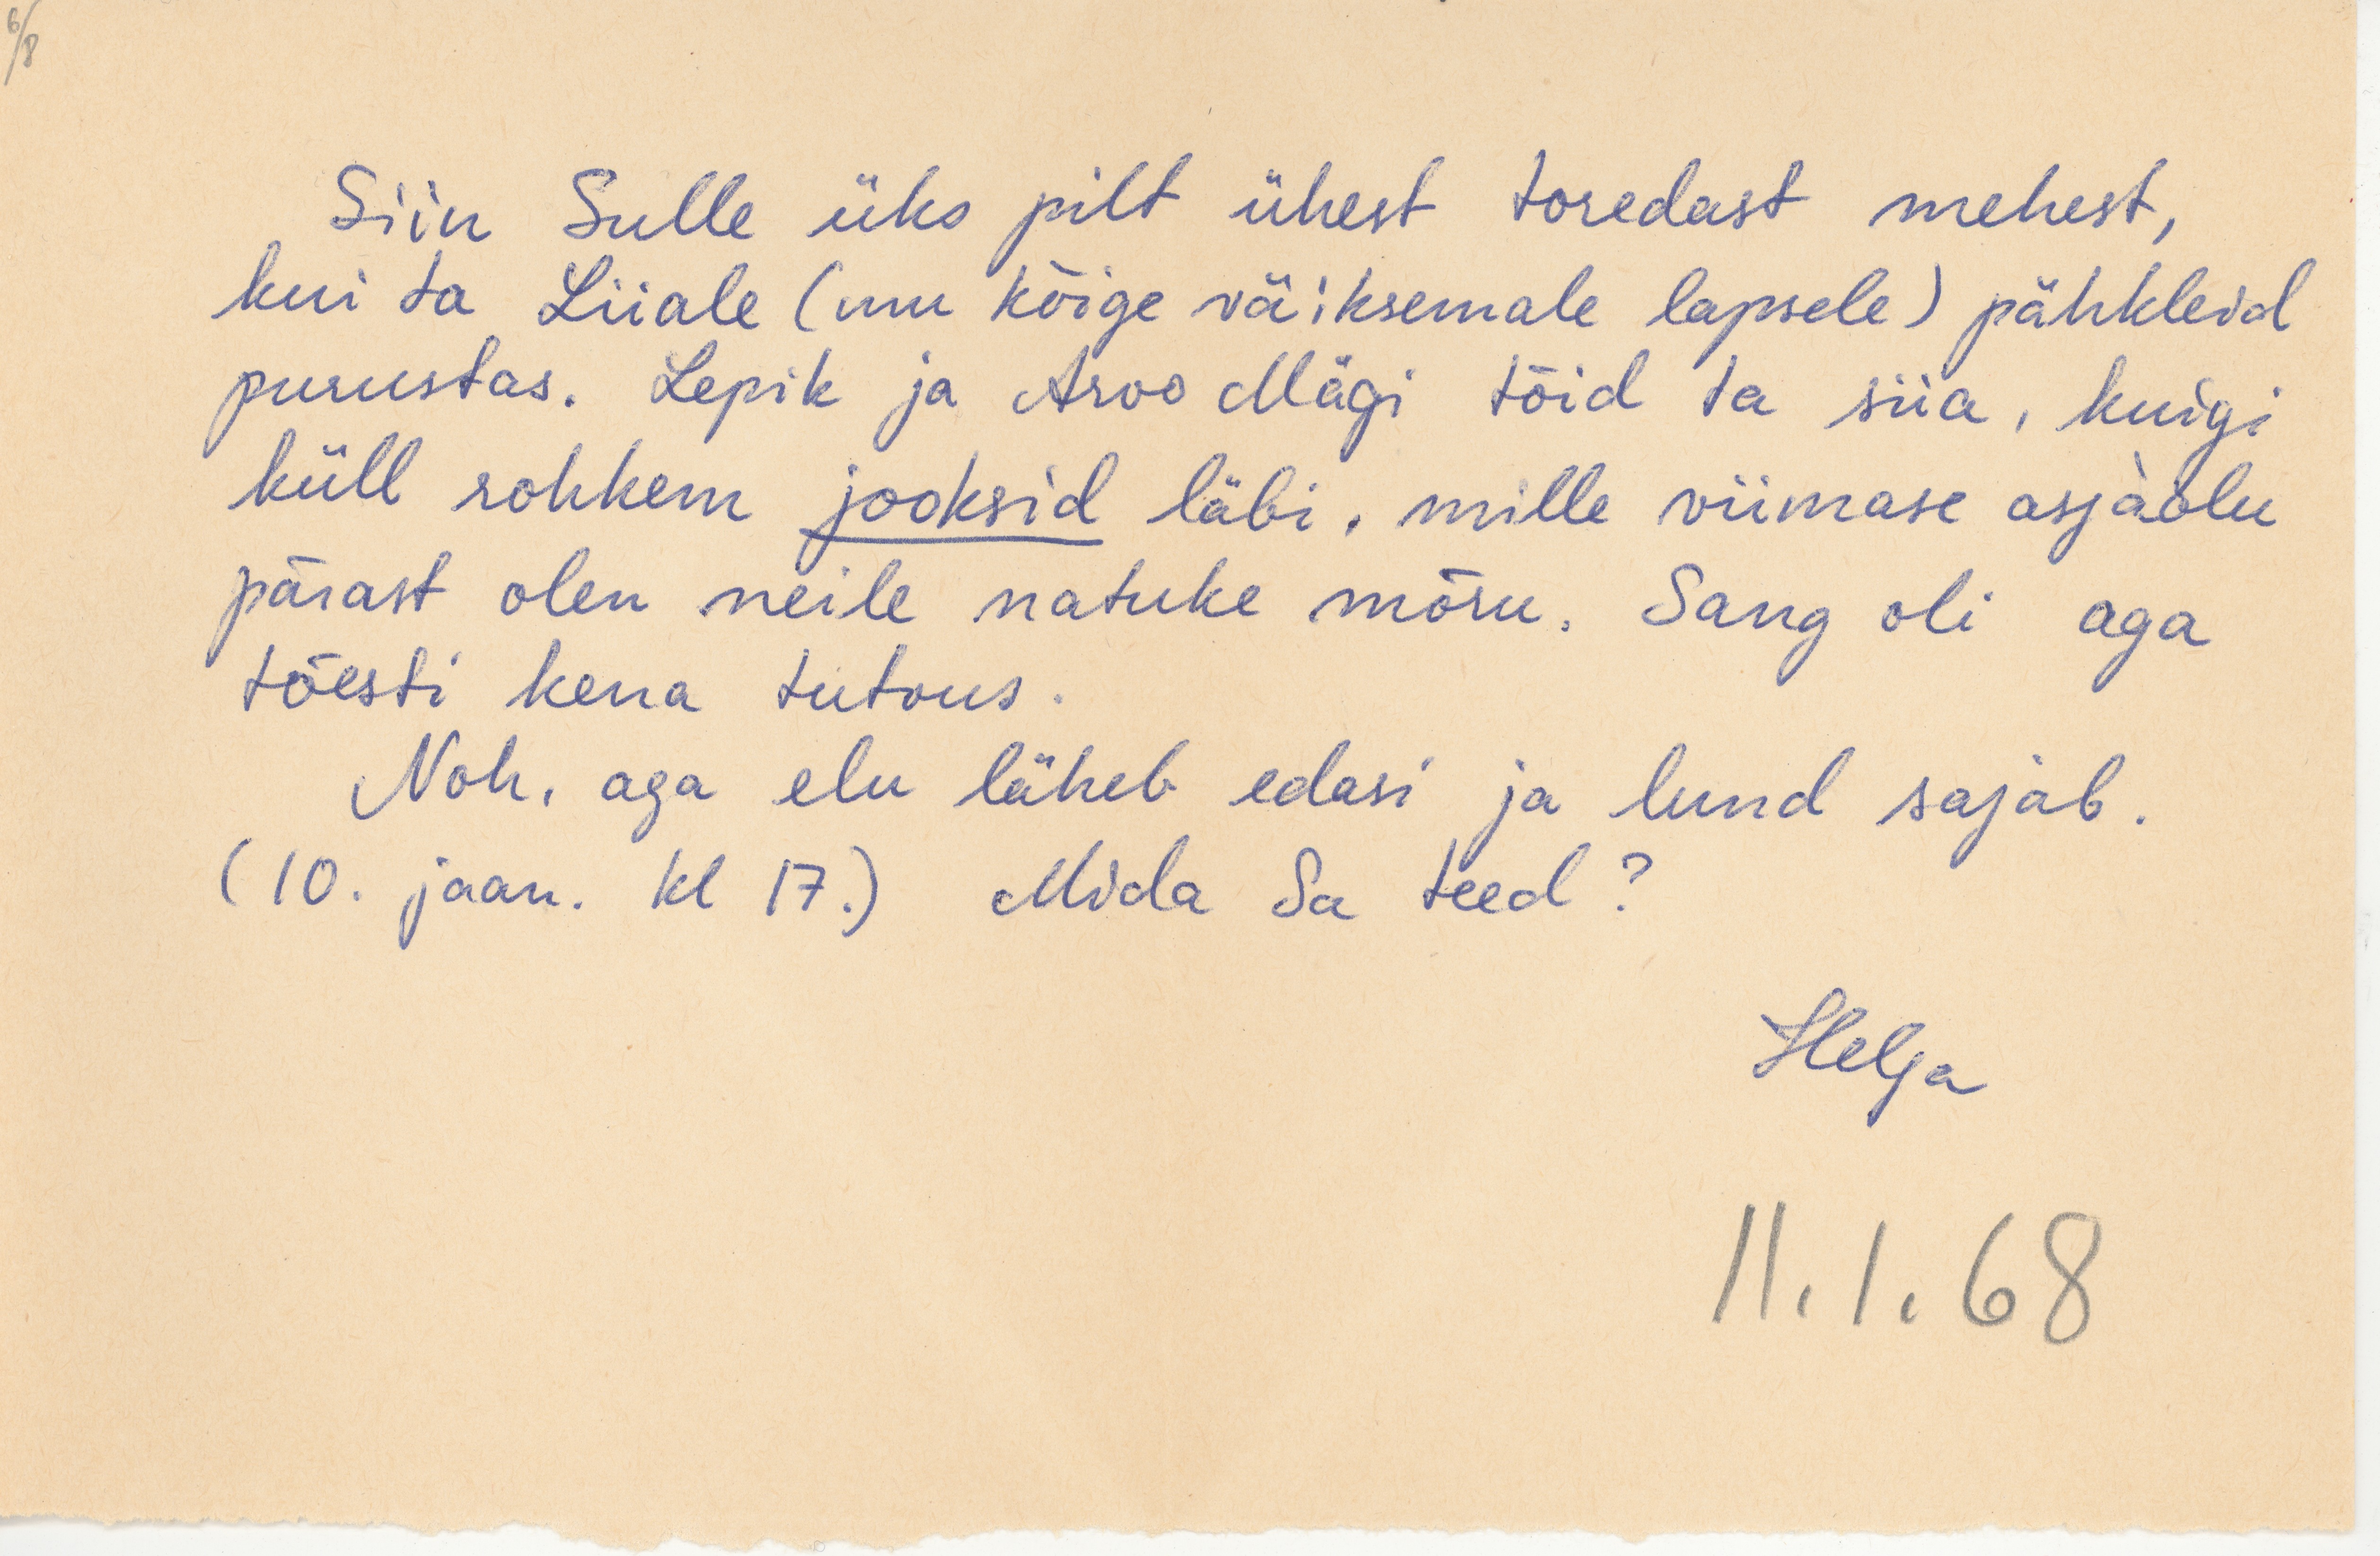 6/8
Siin Sulle üks pilt ühest toredast mehest,
kui ta Liiale (mu kõige väiksemale lapsele) pähkleid
purustas. Lepik ja Arvo Mägi tõid ta siia, kuigi
küll rohkem jooksid läbi, mille viimase asjaolu
pärast olen neile natuke mõru. Sang oli aga
tõesti kena tutvus.
Noh, aga elu läheb edasi ja lund sajab.
(10. jaan. kl 17.) Mida Sa teed?
Helga
11.1.68